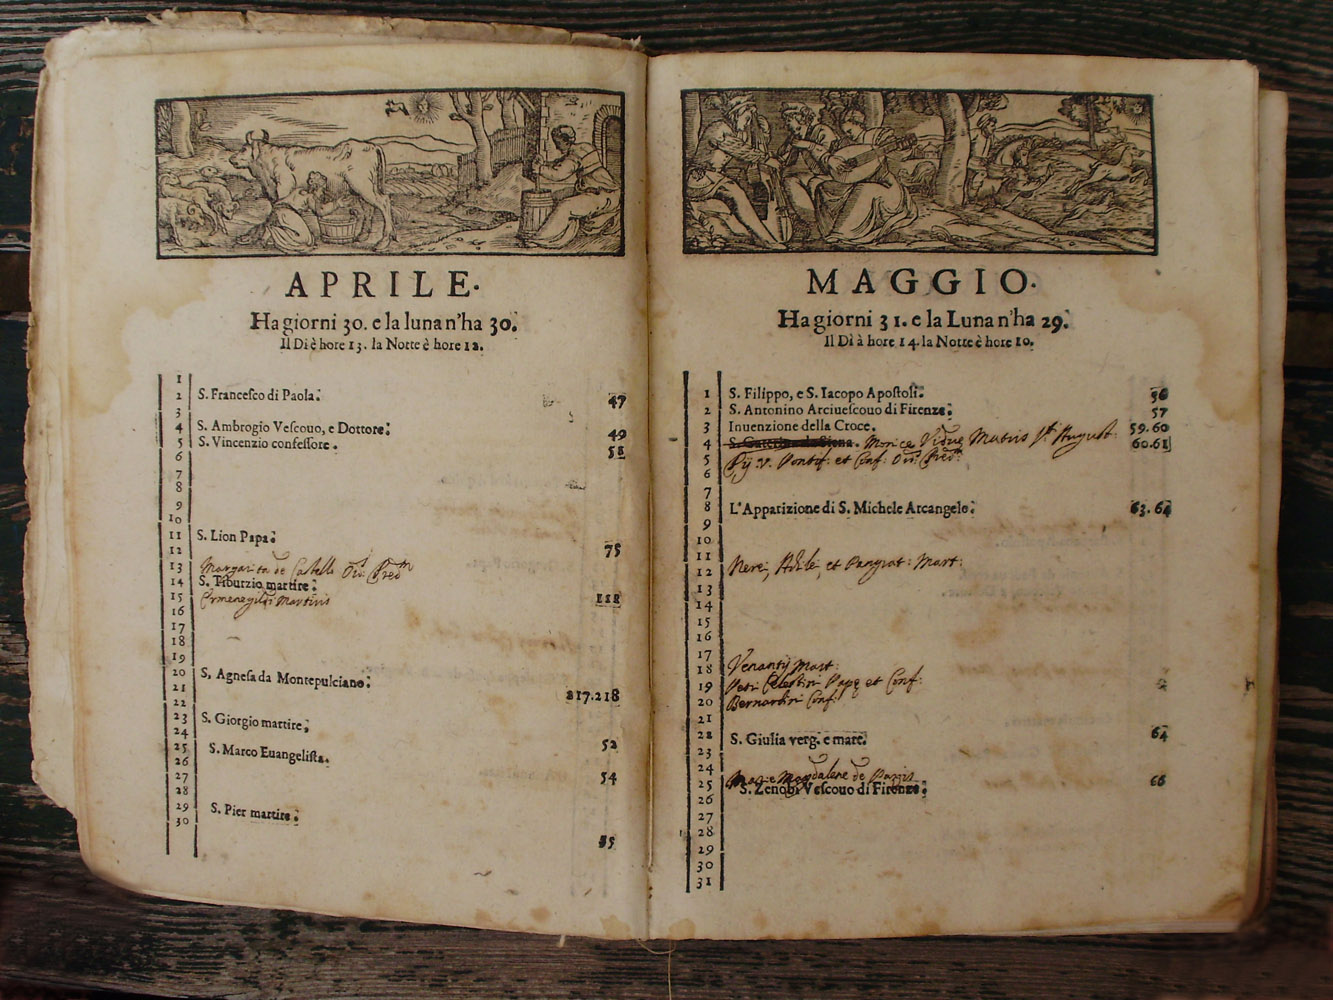 APRILE.
Ha giorni 30. e la luna n'ha 30.
Il Dì è hore 13. la Notte è hore 12.
1
2 S. Francesco di Paola. 47
3
4 S. Ambrogio Vescouo, e Dottore. 49
5 S. Vincenzio confessore. 51
6
7
8
9
10
11 S. Lion Papa. 75
12
13 Margarita de Castello Ord. Pred.
14 S. Tiburzio martire.
15 Ermenegildi Martiris
16
17
18
19
20 S. Agnesa da Montepulciano. 217.218
21
22
23 S. Giorgio martire. 52
24
25 S. Marco Euangelista. 54
26
27
28
29 S. Pier martire. 55
30
MAGGIO.
Ha giorni 31. e la Luna n'ha 29.
Il Dì à hore 14. la Notte è hore 10.
1 S. Filippo, e S. Iacopo Apostoli. 56
2 S. Antonino Arciuescouo di Firenze. 57
3 Inuenzione della Croce. 59.60
4 S. Caterina da Siena. Monice Vidue Matris Sti August. 60.61
5 Pij. V. Pontif. et Conf. Ord. Pred.
6
7
8 L'Apparizione di S. Michele Arcangelo. 63.64
9
10
11
12 Nerei, Achilei, et Pangrat. Mart.
13
14
15
16
17
18 Venantij Mart.
19 Petri Celestini Pape et Conf.
20 Bernardini Conf.
21
22 S. Giulia verg. e mart. 64
23
24
25 Marie Magdalene de Pazzis
S. Zenobi Vescouo di Firenze. 66
26
27
28
29
30
31